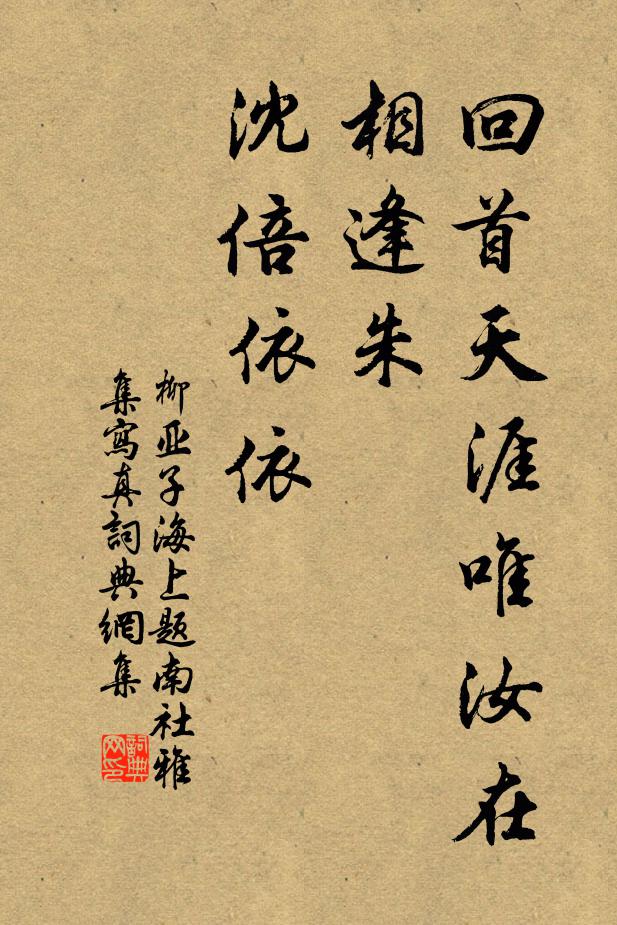 回首天涯唯汝在
相逢朱
沈倍依依
柳亚子海上题南社雅
集寫真詞典網集
詞典网印